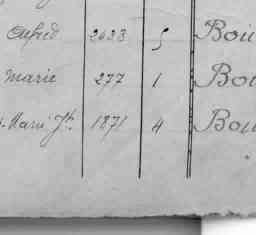 Alfred 2023 5 Bou
Marie 277 1 Bou
Marie Jh. 1871 4 Bou